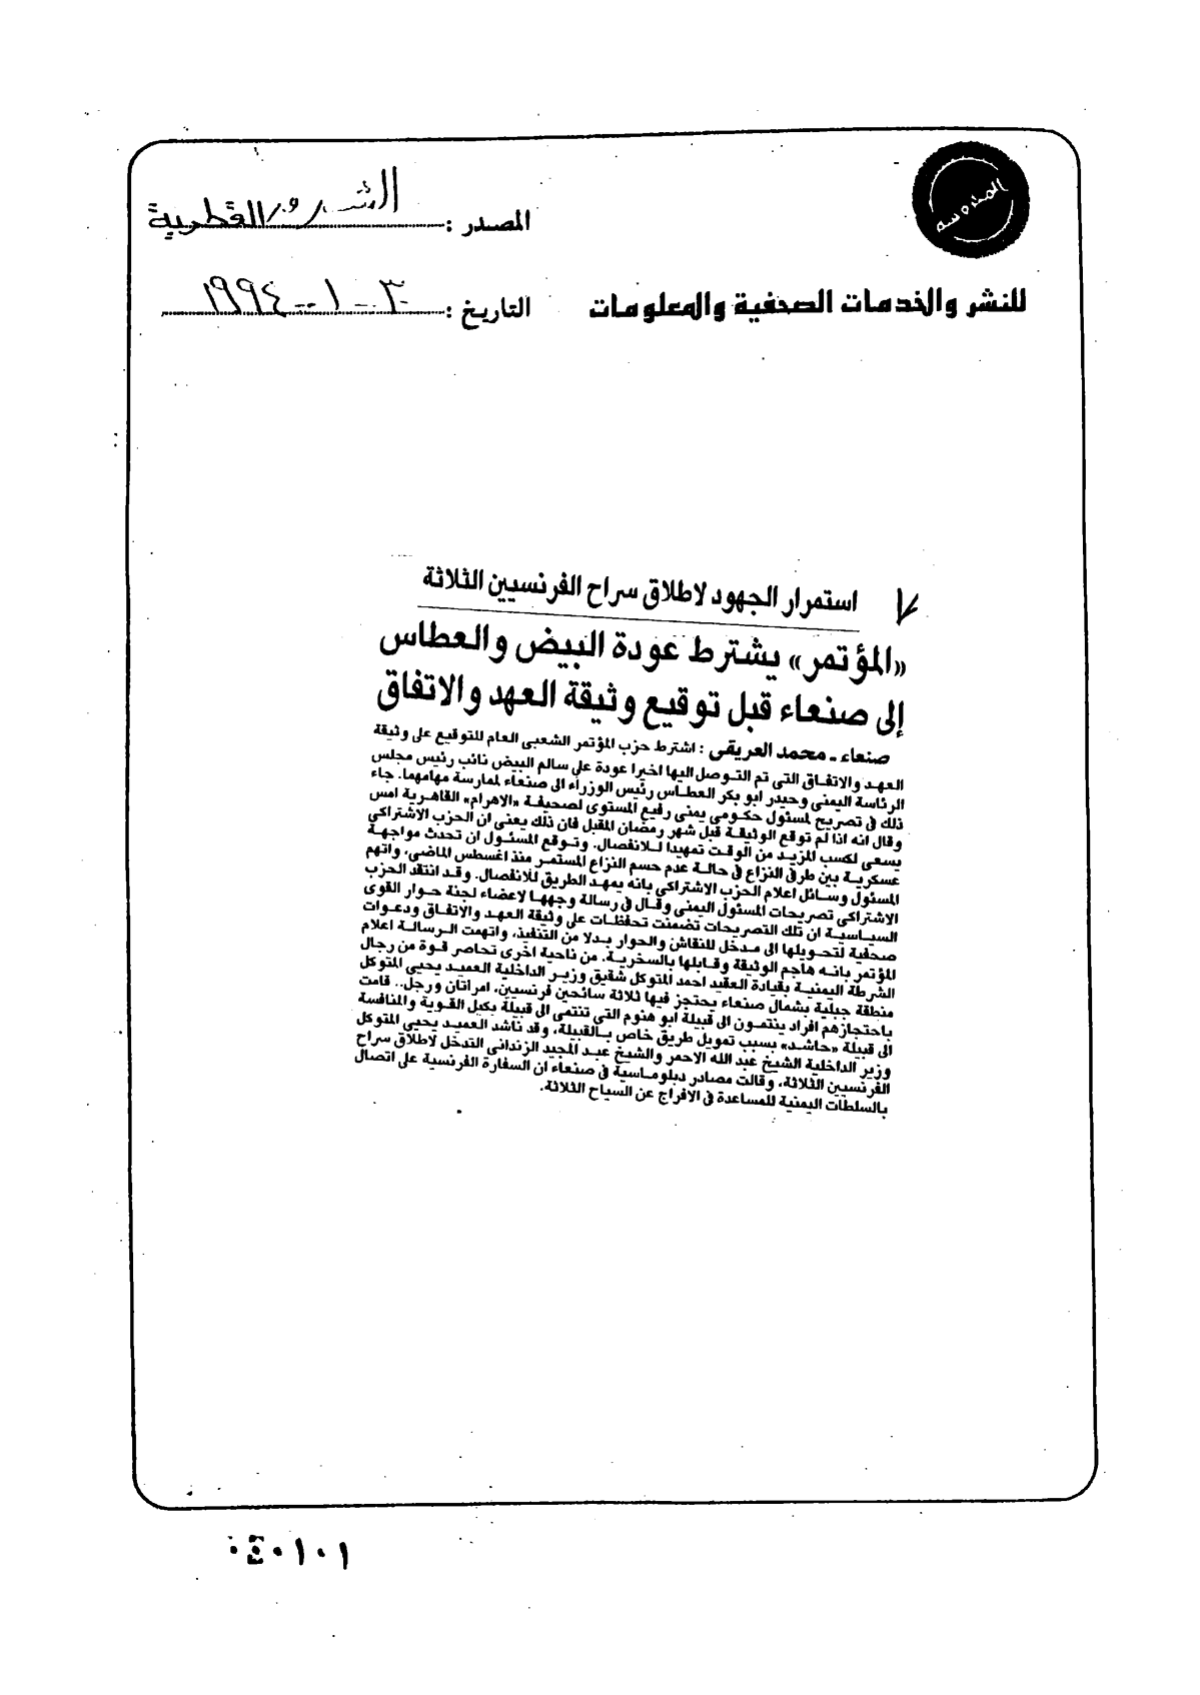 المحروسة
المصدر : الشروق القطرية
للنشر والخدمات الصحفية والمعلومات
التاريخ : ٣٠-١-١٩٩٤
٧
استمرار الجهود لاطلاق سراح الفرنسيين الثلاثة
«المؤتمر» يشترط عودة البيض والعطاس
إلى صنعاء قبل توقيع وثيقة العهد والاتفاق
صنعاء ـ محمد العريقى : اشترط حزب المؤتمر الشعبى العام للتوقيع على وثيقة
العهد والاتفاق التى تم التوصل اليها اخيرا عودة على سالم البيض نائب رئيس مجلس
الرئاسة اليمنى وحيدر ابو بكر العطاس رئيس الوزراء الى صنعاء لممارسة مهامهما. جاء
ذلك فى تصريح لمسئول حكومى يمنى رفيع المستوى لصحيفة «الاهرام» القاهرية امس
وقال انه اذا لم توقع الوثيقة قبل شهر رمضان المقبل فان ذلك يعنى ان الحزب الاشتراكى
يسعى لكسب المزيد من الوقت تمهيدا للانفصال. وتوقع المسئول ان تحدث مواجهة
عسكرية بين طرفى النزاع فى حالة عدم حسم النزاع المستمر منذ اغسطس الماضى، واتهم
المسئول وسائل اعلام الحزب الاشتراكى بانه يمهد الطريق للانفصال. وقد انتقد الحزب
الاشتراكى تصريحات المسئول اليمنى وقال فى رسالة وجهها لاعضاء لجنة حوار القوى
السياسية ان تلك التصريحات تضمنت تحفظات على وثيقة العهد والاتفاق ودعوات
صحفية لتحويلها الى مدخل للنقاش والحوار بدلا من التنفيذ، واتهمت الرسالة اعلام
المؤتمر بانه هاجم الوثيقة وقابلها بالسخرية. من ناحية اخرى تحاصر قوة من رجال
الشرطة اليمنية بقيادة العقيد احمد المتوكل شقيق وزير الداخلية العميد يحيى المتوكل
منطقة جبلية بشمال صنعاء يحتجز فيها ثلاثة سائحين فرنسيين، امراتان ورجل.. قامت
باحتجازهم افراد ينتمون الى قبيلة ابو هنوم التى تنتمى الى قبيلة بكيل القوية والمنافسة
الى قبيلة «حاشد» بسبب تمويل طريق خاص بالقبيلة، وقد ناشد العميد يحيى المتوكل
وزير الداخلية الشيخ عبد الله الاحمر والشيخ عبد المجيد الزندانى التدخل لاطلاق سراح
الفرنسيين الثلاثة، وقالت مصادر دبلوماسية فى صنعاء ان السفارة الفرنسية على اتصال
بالسلطات اليمنية للمساعدة فى الافراج عن السياح الثلاثة.